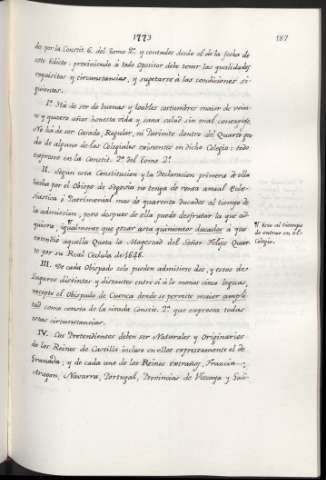 1773
187
do por la Constit. 6. del Tomo 2º. y contados desde el de la fecha de
este Edicto: previniendo à todo Opositor debe tener las qualidades,
requisitos y circunstancias, y sujetarse à las condiciones si-
guientes.
Iª. Ha de ser de buenas y loables costumbres maior de vein-
te y quatro años honesta vida y sana salud sin mal
No ha de ser Casado, Regular, ni Pariente dentro del Quarto gra-
do de alguno de los Colegiales existentes en dicho Colegio: todo
expreso en la Constit. 2ª del Tomo 2º.
II. Segun una Constitucion y la Declaracion primera de ella
hecha por el Obispo de Segovia no tenga de renta anual Ecle-
siastica ò Patrimonial mas de quarenta Ducados al tiempo de
la admision, pero despues de ella puede disfrutar la que ad-
quiera, igualmente que gozar otra quinientos ducados à que
extendió aquella Quota la Magestad del Señor Felipe Quar-
to por su Real Cedula de 1646.
III. De cada Obispado solo pueden admitirse dos, y estos de
Lugares distintos y distantes entre sí à lo menos cinco leguas,
excepto el Obispado de Cuenca donde se permite maior ampli-
tud como consta de la citada Constit. 2ª que expresa todas
estas circunstancias.
IV. Los Pretendientes deben ser Naturales y Originarios
de los Reinos de Castilla incluso en ellos expresamente el de
Granada; y de cada uno de los Reinos extraños, Francia,
Aragon, Navarra, Portugal, Provincias de Vizcaya y Gui-
al tiempo
de entrar en el
Colegio.